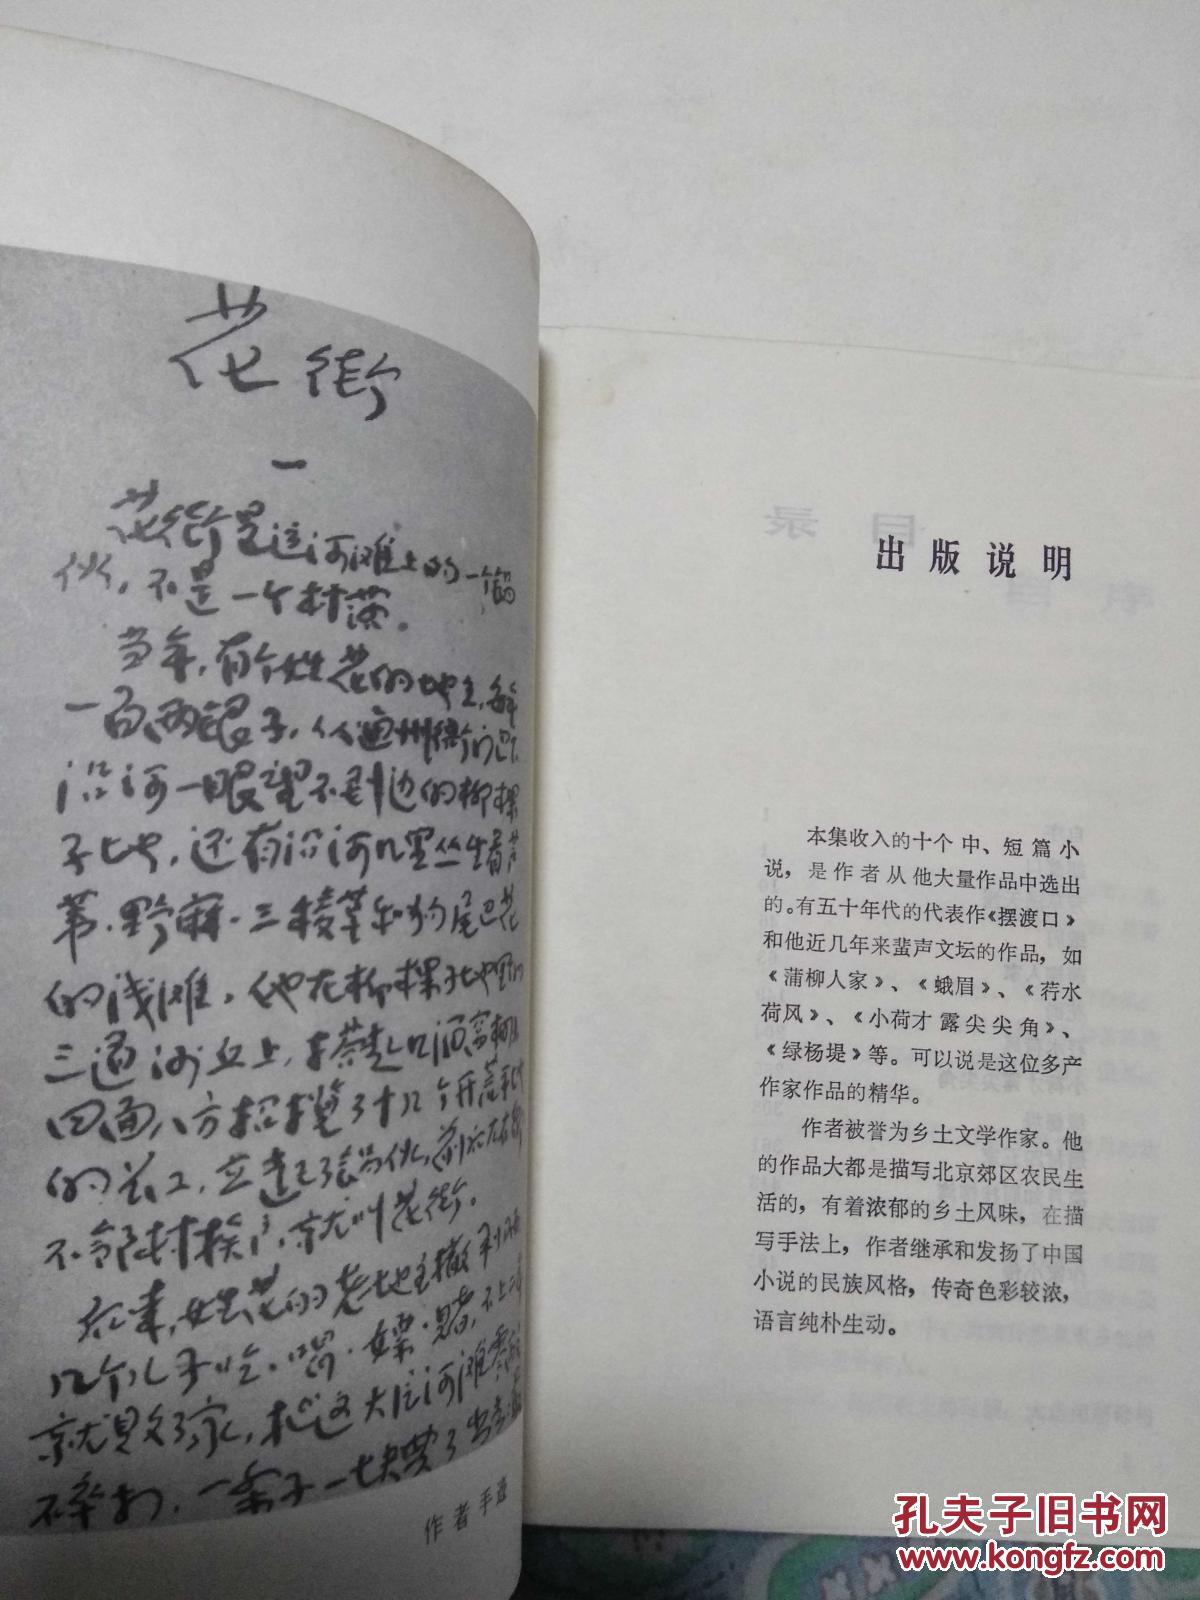 花街
一
花街是这河滩上的一个锅
伙，不是一个村落。
当年，有个姓花的地主，每年
一百两银子，从通州衙门
沿河一眼望不到边的柳棵
子地，还有沿河几里丛生着芦
苇、野麻、三棱草和狗尾巴花
的浅滩。他在柳棵子地里的
三道沙丘上，
四面八方招揽了十几个开荒
的长工，立起了锅伙，前后左右
不邻村挨户，就叫花街。
后来，姓花的老地主撒手
几个儿子吃、喝、嫖、赌，不上
就败了家，把这大片河滩
不零打，一条子一块卖了
作者手迹
出版说明
本集收入的十个中、短篇小
说，是作者从他大量作品中选出
的。有五十年代的代表作《摆渡口》
和他近几年来蜚声文坛的作品，如
《蒲柳人家》、《蛾眉》、《荇水
荷风》、《小荷才露尖尖角》、
《绿杨堤》等。可以说是这位多产
作家作品的精华。
作者被誉为乡土文学作家。他
的作品大都是描写北京郊区农民生
活的，有着浓郁的乡土风味，在描
写手法上，作者继承和发扬了中国
小说的民族风格，传奇色彩较浓，
语言纯朴生动。
孔夫子旧书网
www.kongfz.com